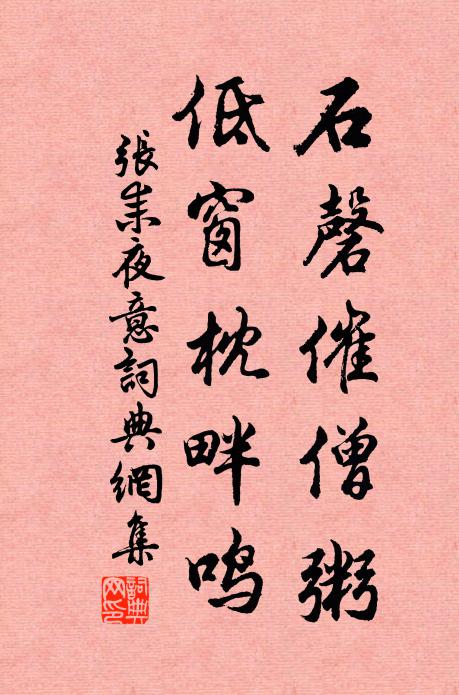 石磬催僧粥
低窗枕畔鸣
張耒夜意詞典網集
詞典網印